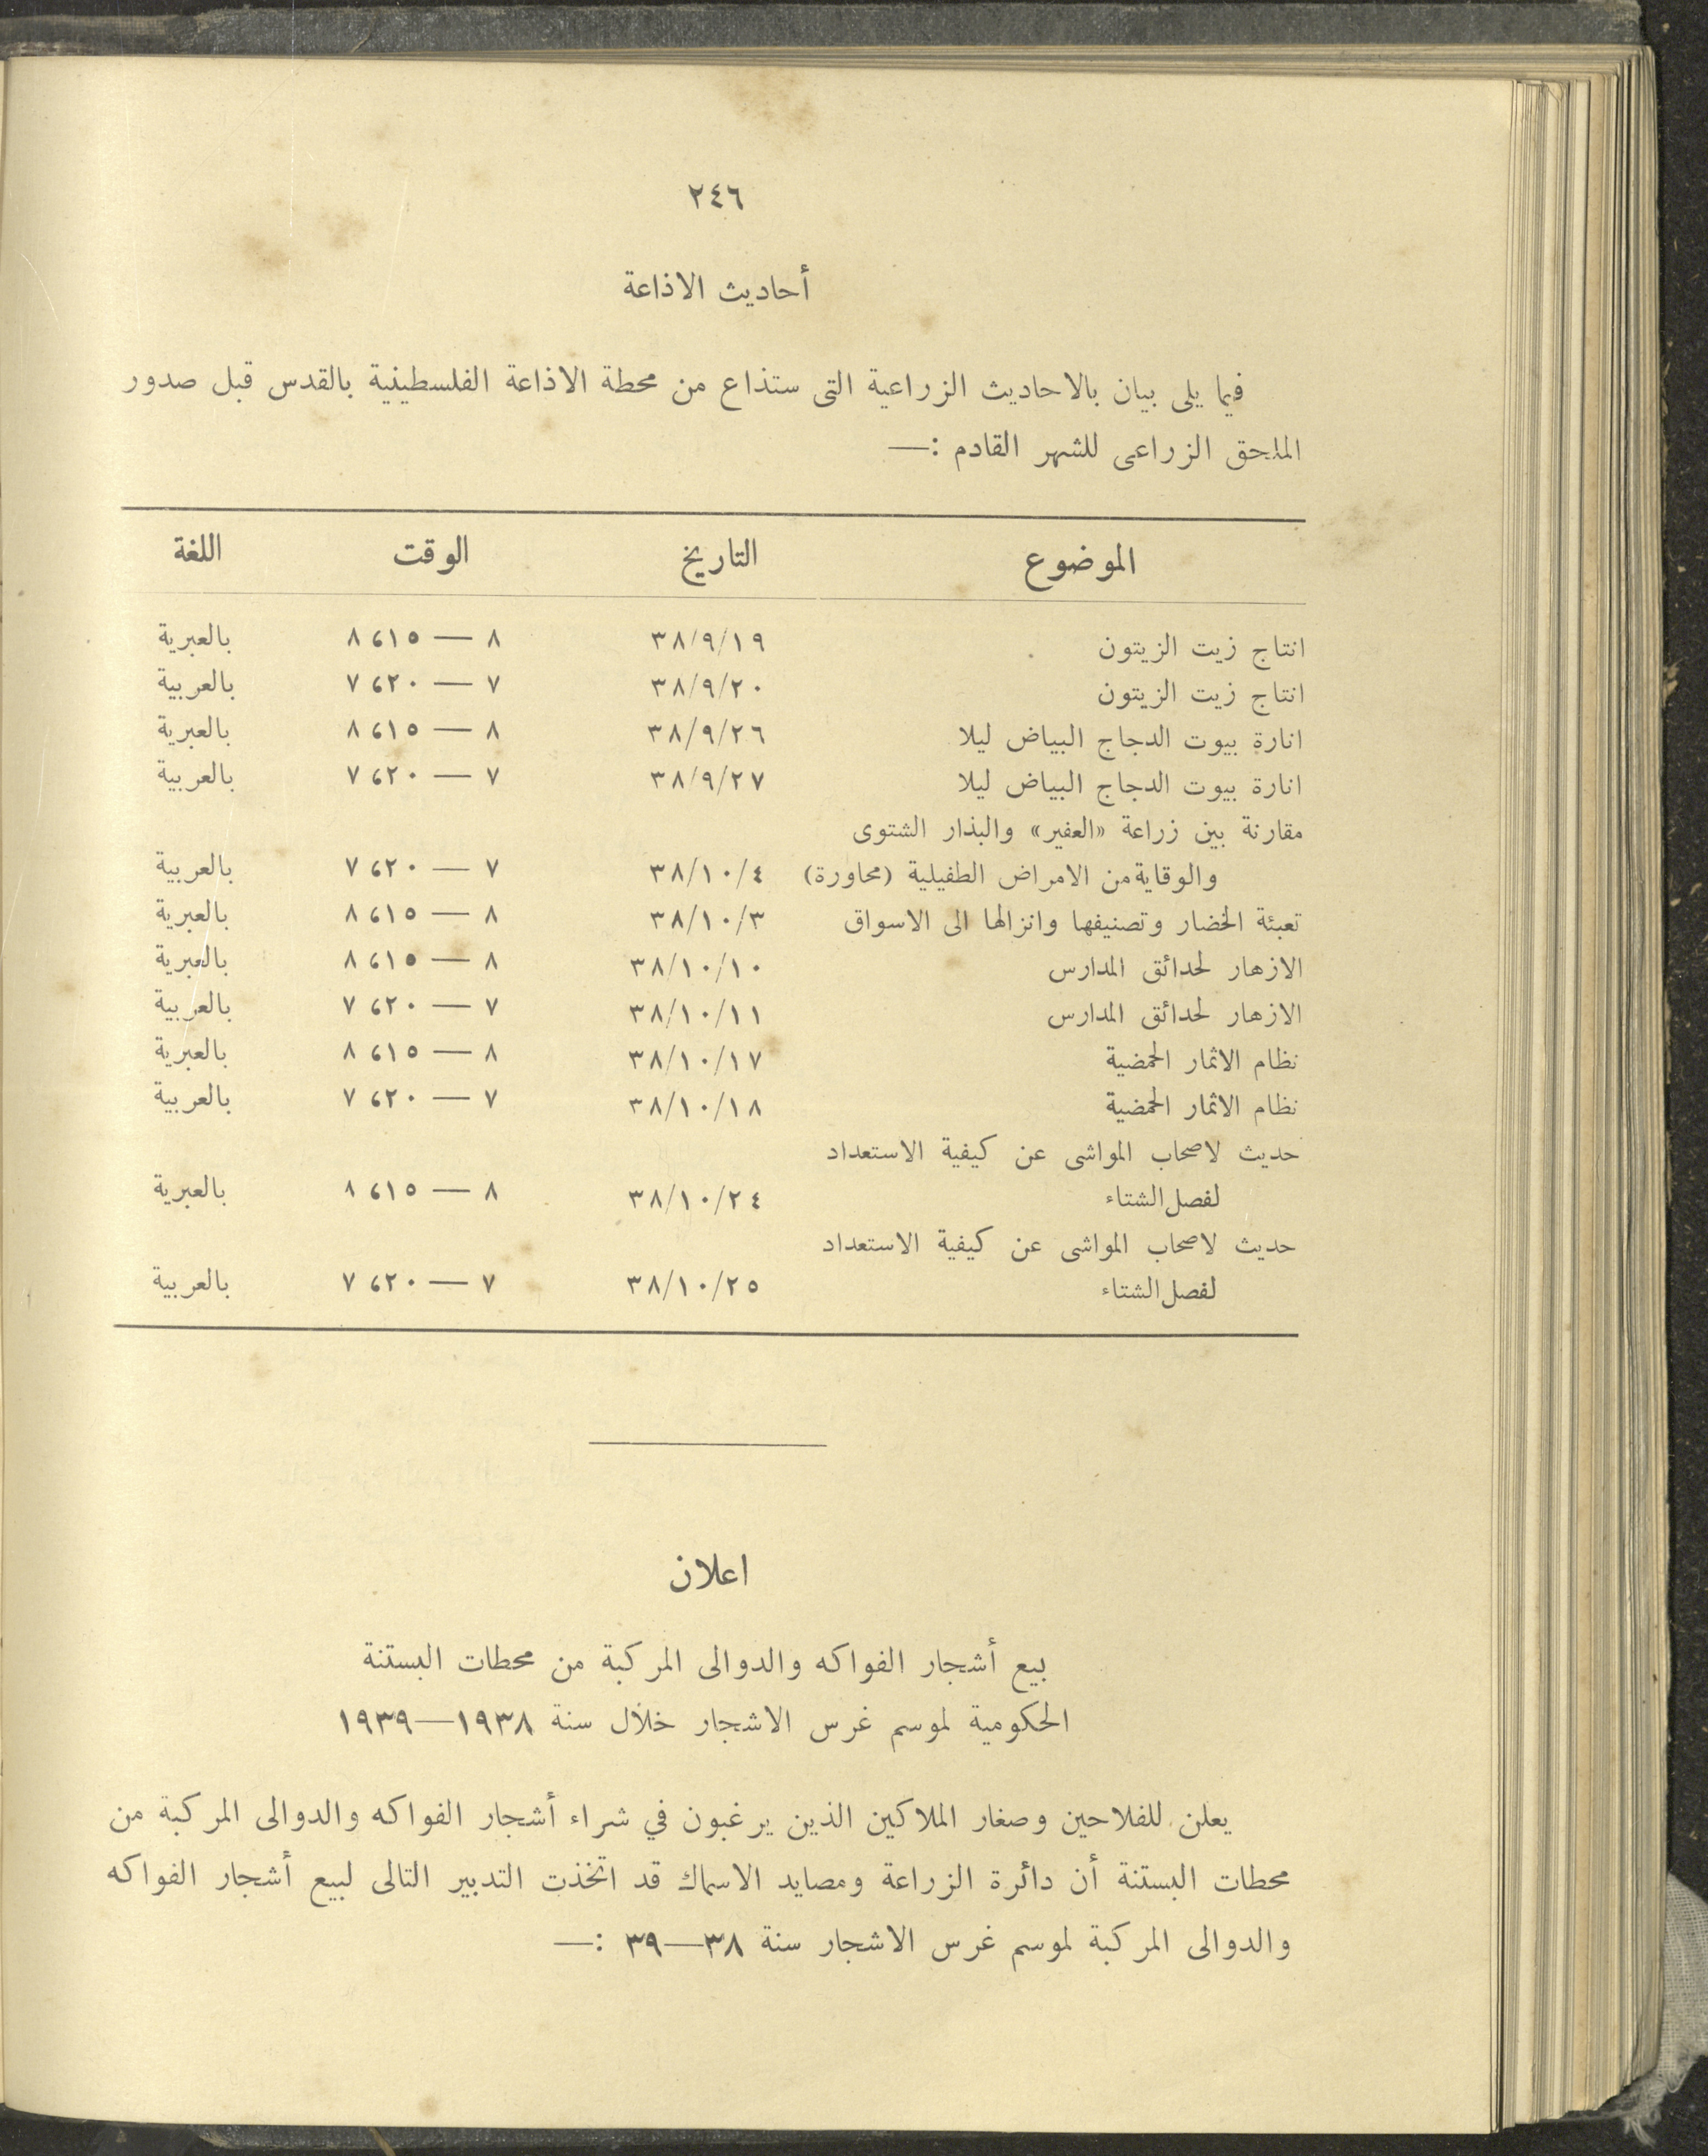 ٢٤٦
أحاديث الاذاعة
فيما يلى بيان بالاحاديث الزراعية التى ستذاع من محطة الاذاعة الفلسطينية بالقدس قبل صدور
الملحق الزراعى للشهر القادم :—
الموضوع التاريخ الوقت اللغة
انتاج زيت الزيتون ٣٨/٩/١٩ ٨ — ٨،١٥ بالعبرية
انتاج زيت الزيتون ٣٨/٩/٢٠ ٧ — ٧،٢٠ بالعربية
انارة بيوت الدجاج البياض ليلا ٣٨/٩/٢٦ ٨ — ٨،١٥ بالعبرية
انارة بيوت الدجاج البياض ليلا ٣٨/٩/٢٧ ٧ — ٧،٢٠ بالعربية
مقارنة بين زراعة «العفير» والبذار الشتوى
والوقاية من الامراض الطفيلية (محاورة) ٣٨/١٠/٤ ٧ — ٧،٢٠ بالعربية
تعبئة الخضار وتصنيفها وانزالها الى الاسواق ٣٨/١٠/٣ ٨ — ٨،١٥ بالعبرية
الازهار لحدائق المدارس ٣٨/١٠/١٠ ٨ — ٨،١٥ بالعبرية
الازهار لحدائق المدارس ٣٨/١٠/١١ ٧ — ٧،٢٠ بالعربية
نظام الاثمار الحمضية ٣٨/١٠/١٧ ٨ — ٨،١٥ بالعبرية
نظام الاثمار الحمضية ٣٨/١٠/١٨ ٧ — ٧،٢٠ بالعربية
حديث لاصحاب المواشى عن كيفية الاستعداد
لفصل الشتاء ٣٨/١٠/٢٤ ٨ — ٨،١٥ بالعبرية
حديث لاصحاب المواشى عن كيفية الاستعداد
لفصل الشتاء ٣٨/١٠/٢٥ ٧ — ٧،٢٠ بالعربية
اعلان
بيع أشجار الفواكه والدوالى المركبة من محطات البستنة
الحكومية لموسم غرس الاشجار خلال سنة ١٩٣٨—١٩٣٩
يعلن للفلاحين وصغار الملاكين الذين يرغبون في شراء أشجار الفواكه والدوالى المركبة من
محطات البستنة أن دائرة الزراعة ومصايد الاسماك قد اتخذت التدبير التالى لبيع أشجار الفواكه
والدوالى المركبة لموسم غرس الاشجار سنة ٣٨—٣٩ :—